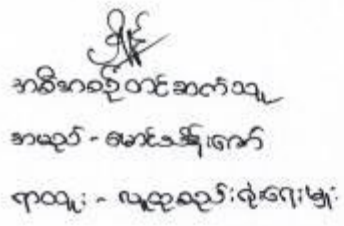 အစီအစဉ်တင်ဆက်သူ
အမည် - မောင်သိန်းဇော်
ရာထူး - လူထုစည်းရုံးရေးမှူး